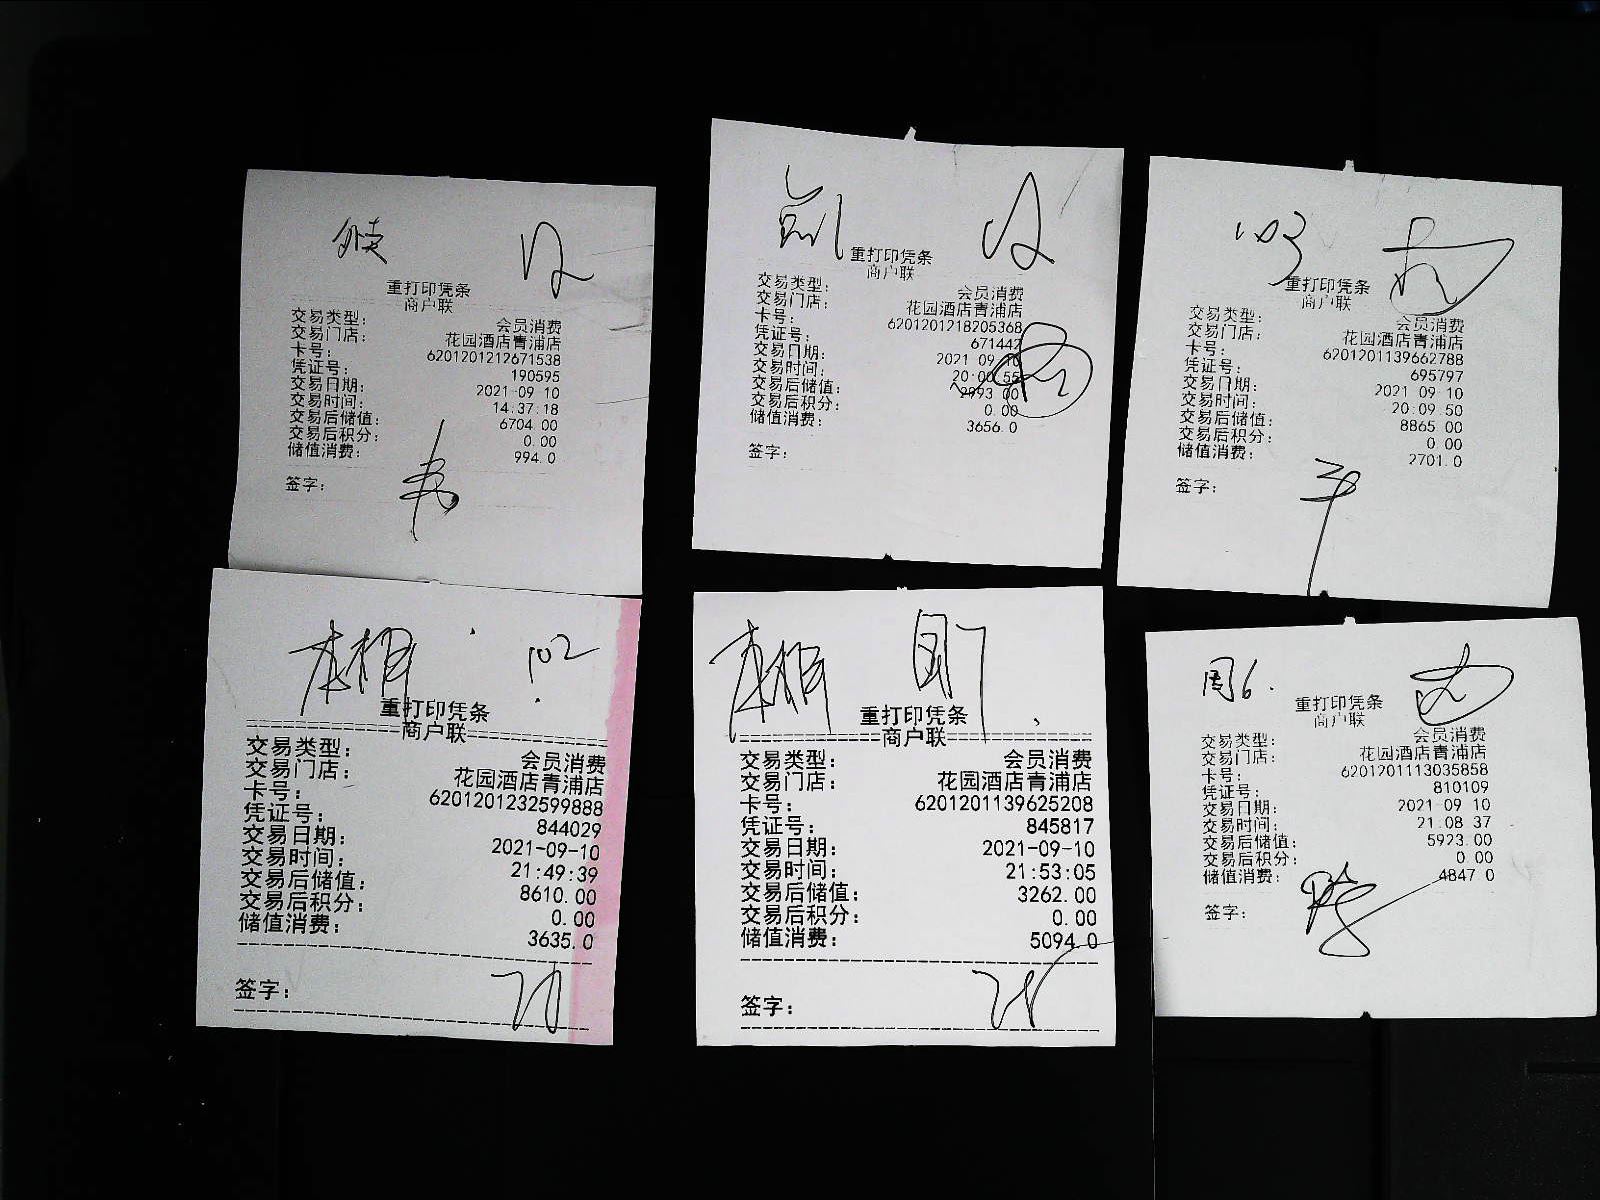 重打印凭条
商户联
交易类型： 会员消费
交易门店： 花园酒店青浦店
卡号： 6201201212671538
凭证号： 190595
交易日期： 2021-09-10
交易时间： 14:37:18
交易后储值： 6704.00
交易后积分： 0.00
储值消费： 994.0
签字：
重打印凭条
商户联
交易类型： 会员消费
交易门店： 花园酒店青浦店
卡号： 6201201218205368
凭证号： 671442
交易日期： 2021 09 10
交易时间： 20:00:55
交易后储值： 2993 00
交易后积分： 0.00
储值消费： 3656.0
签字：
103
重打印凭条
商户联
交易类型： 会员消费
交易门店： 花园酒店青浦店
卡号： 6201201139662788
凭证号： 695797
交易日期： 2021 09 10
交易时间： 20 09 50
交易后储值： 8865 00
交易后积分： 0 00
储值消费： 2701.0
签字：
102
重打印凭条
商户联
交易类型： 会员消费
交易门店： 花园酒店青浦店
卡号： 6201201232599888
凭证号： 844029
交易日期： 2021-09-10
交易时间： 21:49:39
交易后储值： 8610.00
交易后积分： 0.00
储值消费： 3635.0
签字：
重打印凭条
商户联
交易类型： 会员消费
交易门店： 花园酒店青浦店
卡号： 6201201139625208
凭证号： 845817
交易日期： 2021-09-10
交易时间： 21:53:05
交易后储值： 3262.00
交易后积分： 0.00
储值消费： 5094.0
签字：
重打印凭条
商户联
交易类型： 会员消费
交易门店： 花园酒店青浦店
卡号： 6201201113035858
凭证号： 810109
交易日期： 2021 09 10
交易时间： 21.08 37
交易后储值： 5923.00
交易后积分： 0 00
储值消费： 4847 0
签字：